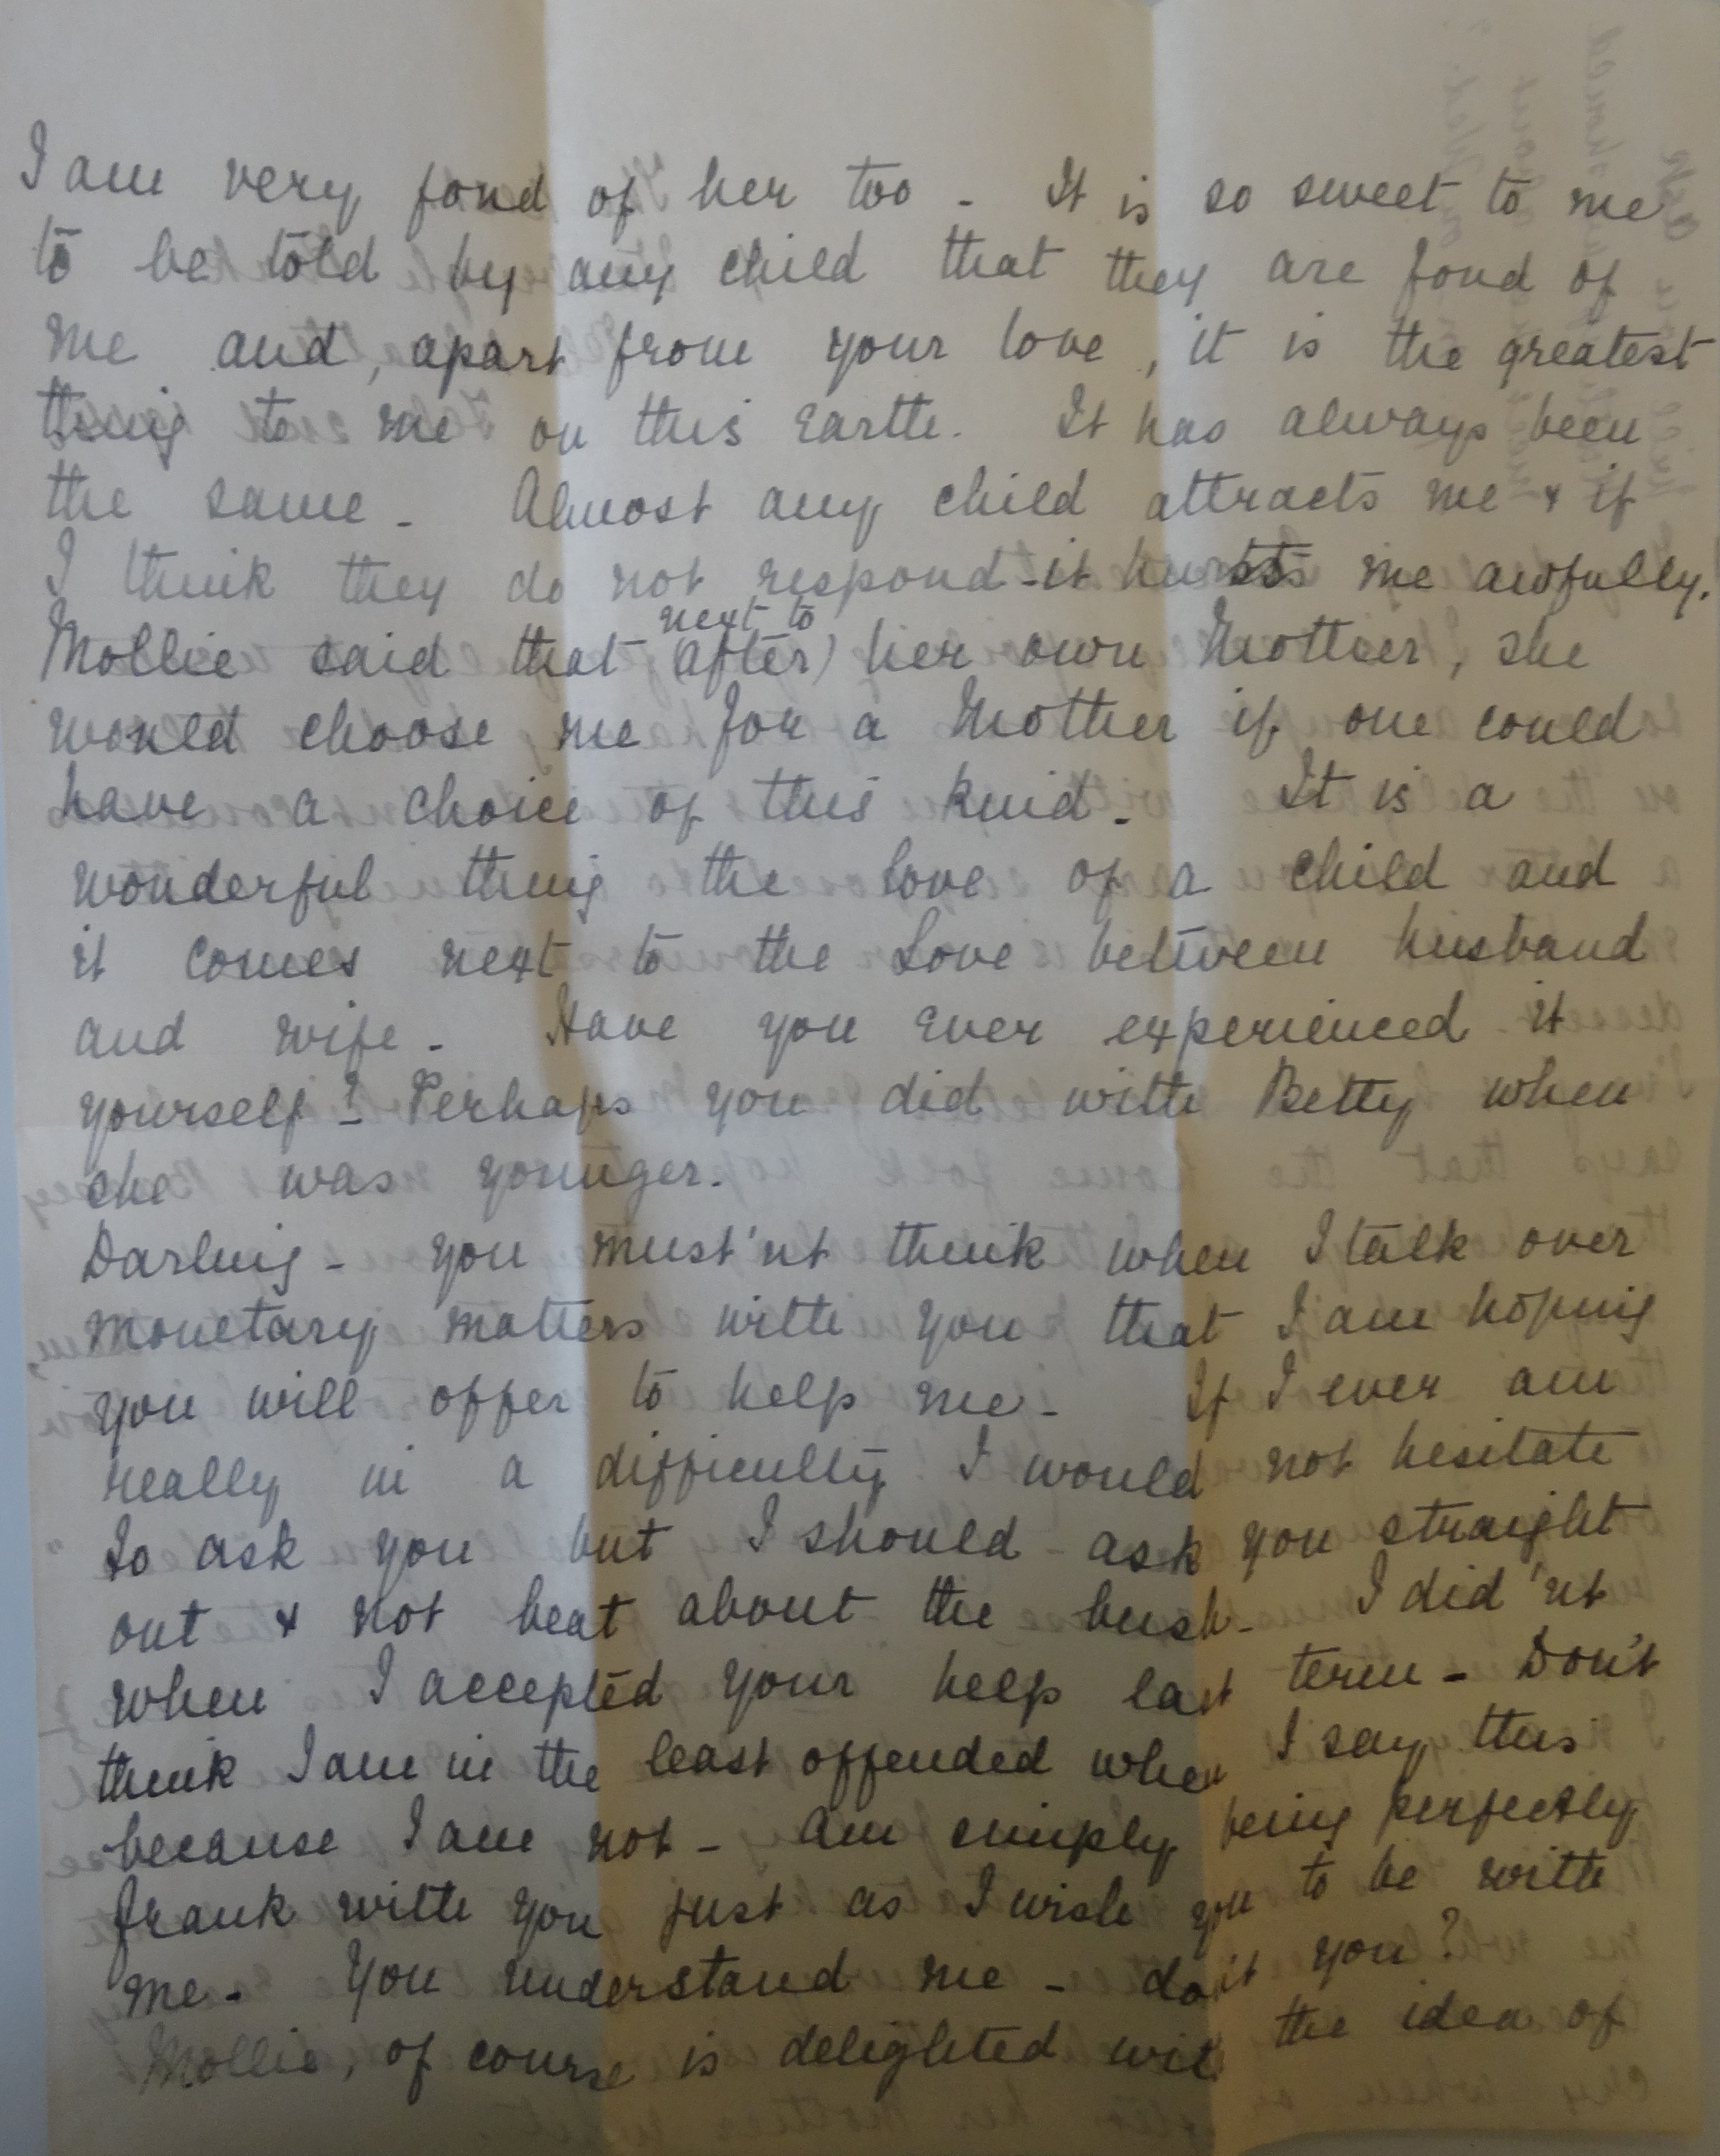 I am very fond of her too - It is so sweet to me
to be told by any child that they are fond of
me and, apart from your love, it is the greatest
thing to me on this Earth. It has always been
the same - Almost any child attracts me & if
I think they do not respond - it hurts me awfully.
next to
Mollie said that (after) her own Mother, she
would choose me for a Mother if one could
have a choice of this kind. It is a
wonderful thing the love of a child and
it comes next to the Love between husband
and wife - Have you ever experienced it
yourself? Perhaps you did with Betty when
she was younger.
Darling - you must'nt think when I talk over
monetary matters with you that I am hoping
you will offer to help me - If I ever am
really in a difficulty I would not hesitate
to ask you but I should ask you straight
out & not beat about the bush - I did'nt
when I accepted your help last term - Don't
think I am in the least offended when I say this
because I am not - am simply being perfectly
frank with you just as I wish you to be with
me - You understand me - don't you?
Mollie, of course is delighted with the idea of